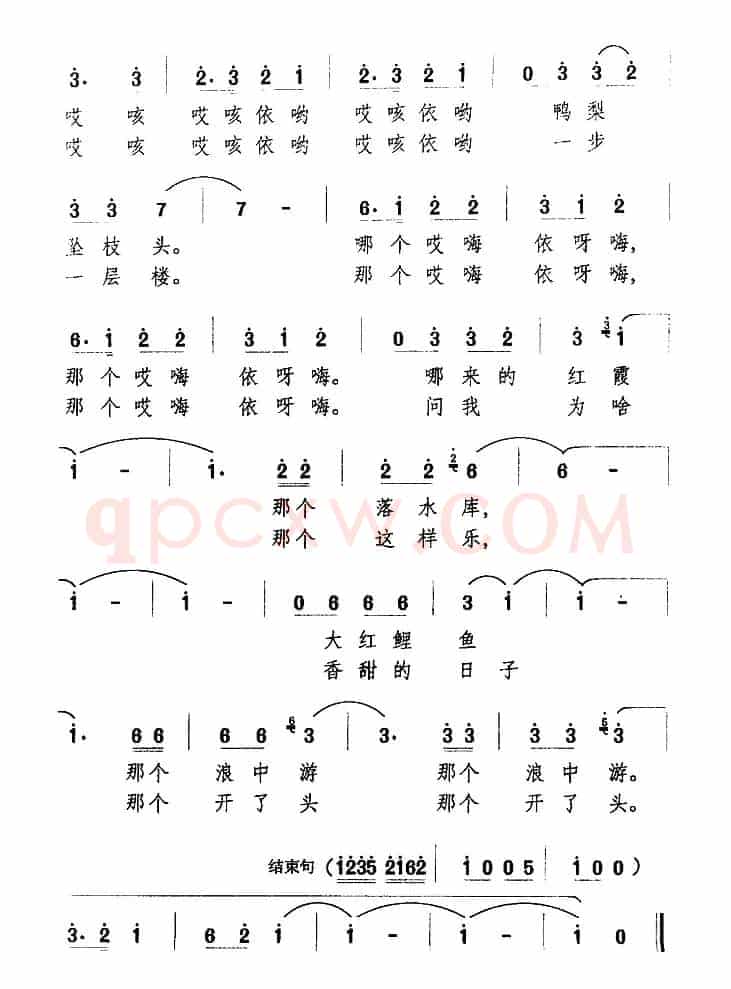 3. 3 | 2. 3 2 1 | 2. 3 2 1 | 0 3 3 2
哎 咳 哎咳依哟 哎咳依哟 鸭梨
哎 咳 哎咳依哟 哎咳依哟 一步
3 3 7 | 7 - | 6. 1 2 2 | 3 1 2
坠枝头。 哪个哎嗨 依呀嗨,
一层楼。 那个哎嗨 依呀嗨,
6. 1 2 2 | 3 1 2 | 0 3 3 2 | 3 3 1
那个哎嗨 依呀嗨。 哪来的 红霞
那个哎嗨 依呀嗨。 问我 为啥
1 - | 1. 2 2 | 2 2 2 6 | 6 -
qpcxw.COM
那个 落水库,
那个 这样乐,
1 - | 1 - | 0 6 6 6 | 3 1 | 1 -
大红鲤 鱼
香甜的 日子
1. 6 6 | 6 6 6 3 | 3. 3 3 | 3 3 6 3
那个 浪中游 那个 浪中游。
那个 开了头 那个 开了头。
结束句 (1235 2162 | 1 0 0 5 | 1 0 0)
3. 2 1 | 6 2 1 | 1 - | 1 - | 1 0